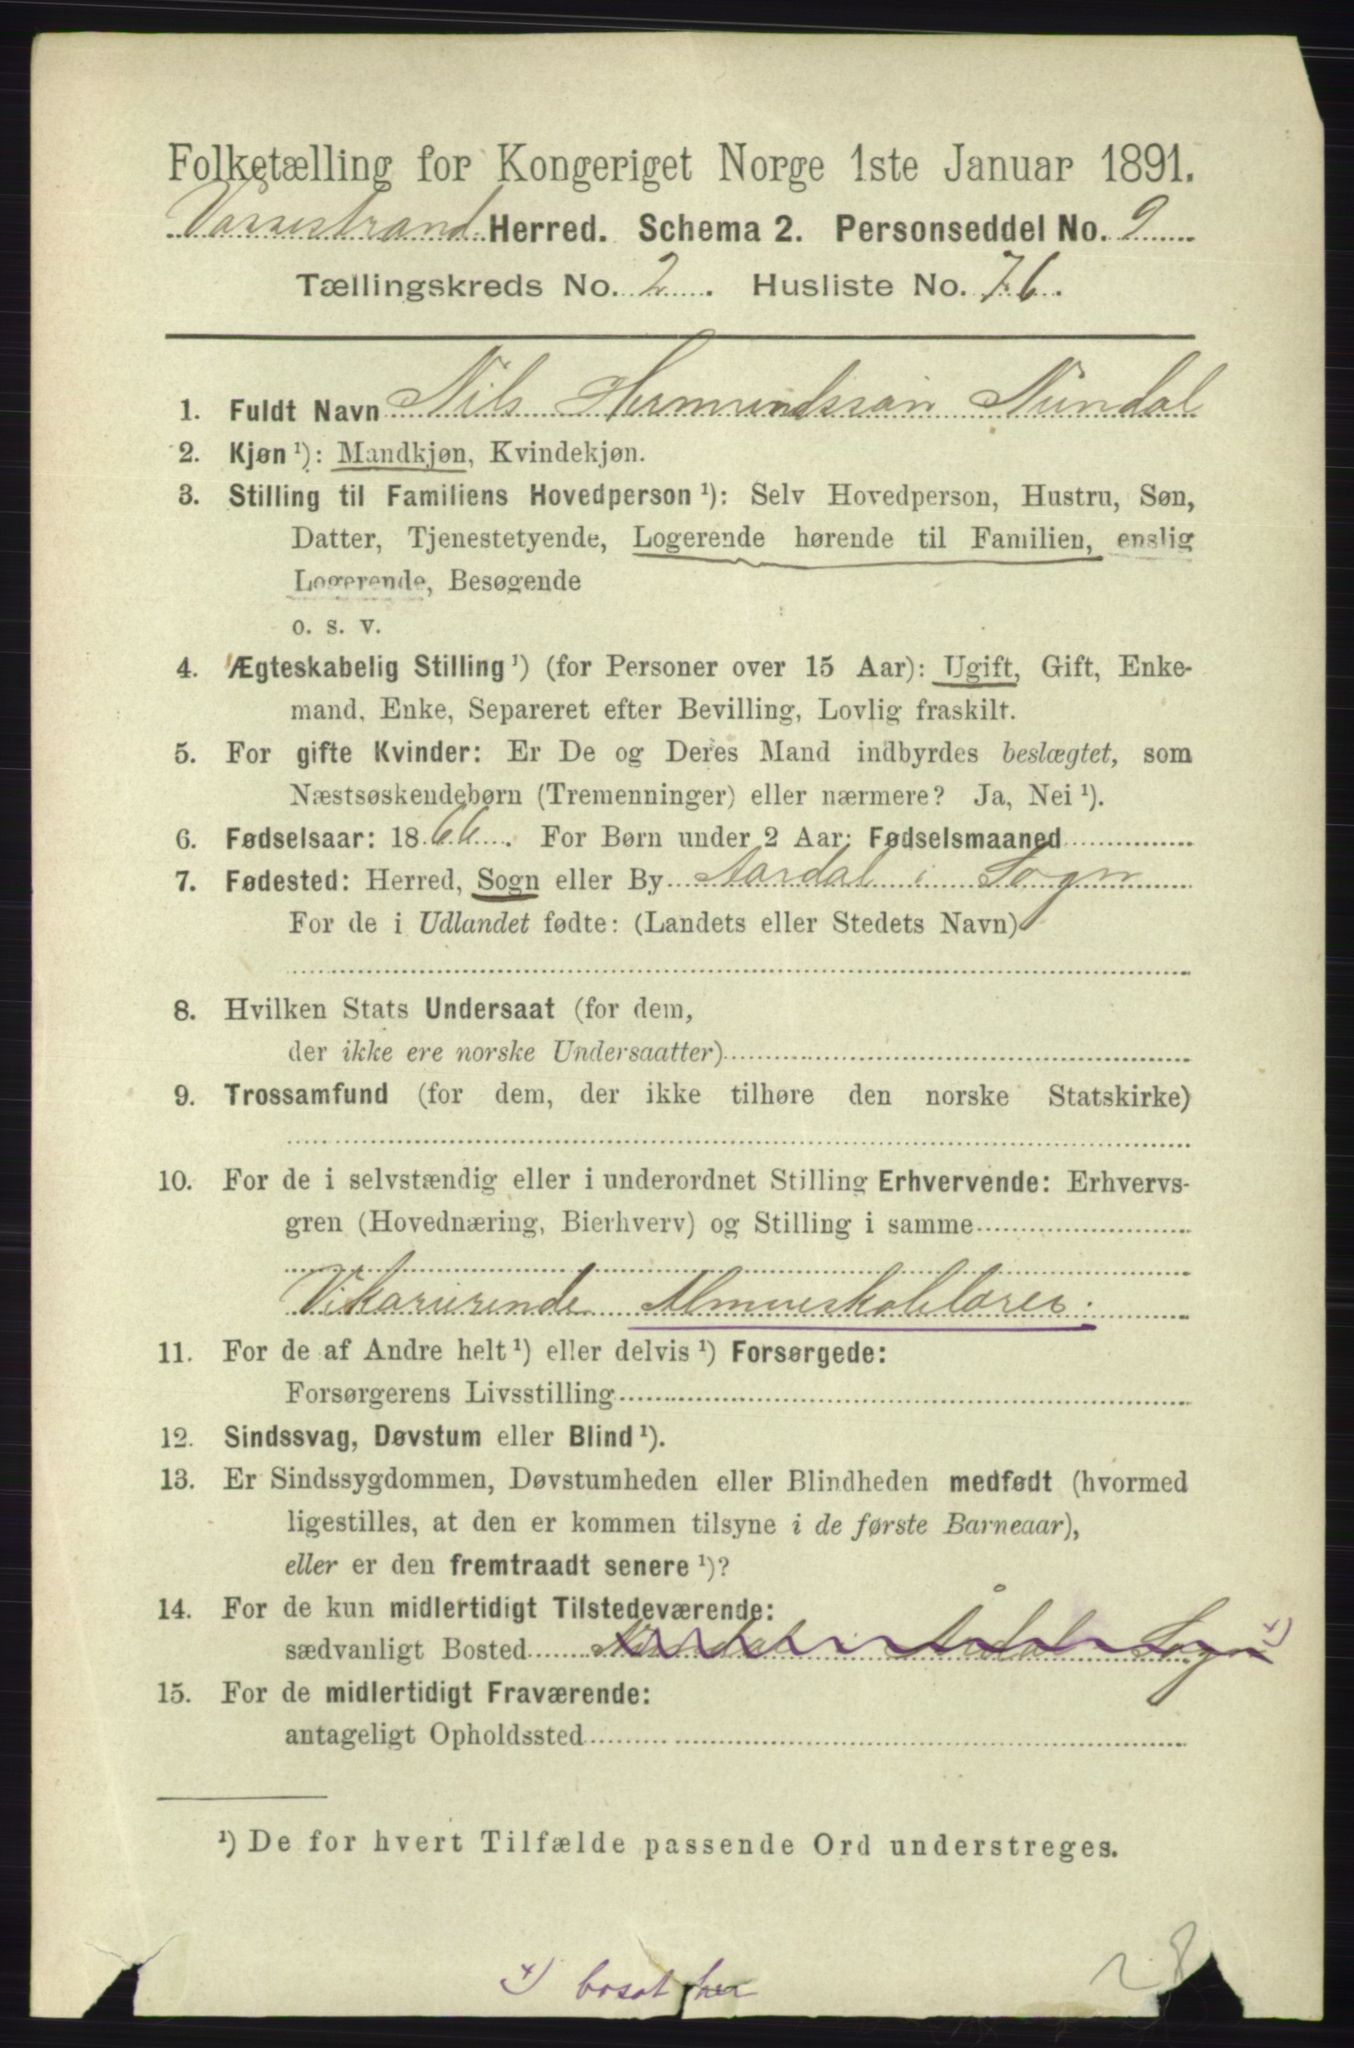 Folketælling for Kongeriget Norge 1ste Januar 1891.
Vossestrand Herred. Schema 2. Personseddel No. 9
Tællingskreds No. 2. Husliste No. 76.
1. Fuldt Navn Nils Hermundssøn Nundal
2. Kjøn ¹): Mandkjøn, Kvindekjøn.
3. Stilling til Familiens Hovedperson ¹): Selv Hovedperson, Hustru, Søn,
Datter, Tjenestetyende, Logerende hørende til Familien, enslig
Logerende, Besøgende
o. s. v.
4. Ægteskabelig Stilling ¹) (for Personer over 15 Aar): Ugift, Gift, Enke-
mand, Enke, Separeret efter Bevilling, Lovlig fraskilt.
5. For gifte Kvinder: Er De og Deres Mand indbyrdes beslægtet, som
Næstsøskendebørn (Tremenninger) eller nærmere? Ja, Nei ¹).
6. Fødselsaar: 1866. For Børn under 2 Aar: Fødselsmaaned
7. Fødested: Herred, Sogn eller By Aardal i Sogn
For de i Udlandet fødte: (Landets eller Stedets Navn)
8. Hvilken Stats Undersaat (for dem,
der ikke ere norske Undersaatter)
9. Trossamfund (for dem, der ikke tilhøre den norske Statskirke)
10. For de i selvstændig eller i underordnet Stilling Erhvervende: Erhvervs-
gren (Hovednæring, Bierhverv) og Stilling i samme
Vikarierende Almueskolelærer.
11. For de af Andre helt ¹) eller delvis ¹) Forsørgede:
Forsørgerens Livsstilling
12. Sindssvag, Døvstum eller Blind ¹).
13. Er Sindssygdommen, Døvstumheden eller Blindheden medfødt (hvormed
ligestilles, at den er kommen tilsyne i de første Barneaar),
eller er den fremtraadt senere ¹)?
14. For de kun midlertidigt Tilstedeværende:
sædvanligt Bosted Nundal i Årdal Sogn x)
15. For de midlertidigt Fraværende:
antageligt Opholdssted
¹) De for hvert Tilfælde passende Ord understreges.
x) bosat her
28